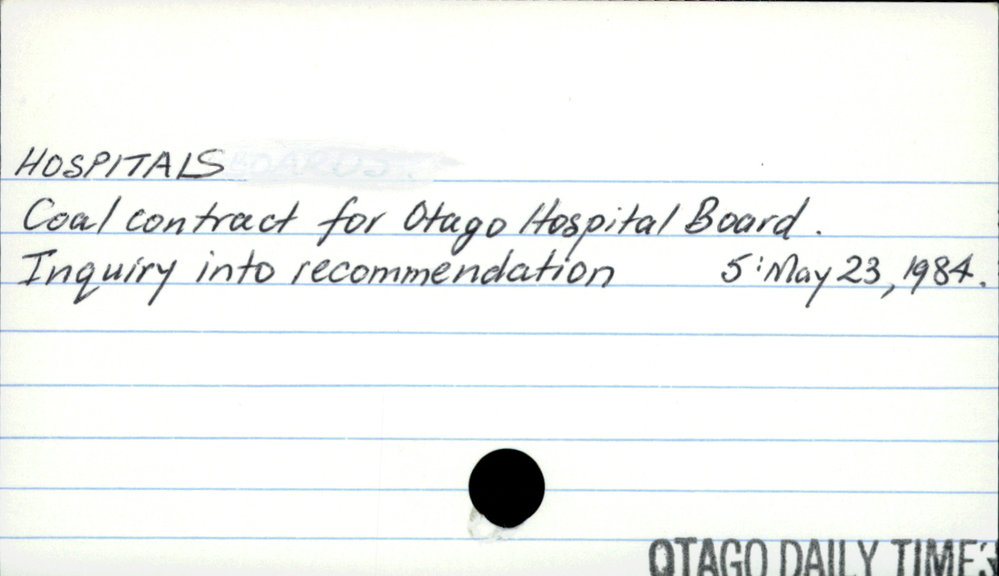 HOSPITALS
Coal contract for Otago Hospital Board.
Inquiry into recommendation 5: May 23, 1984.
OTAGO DAILY TIMES